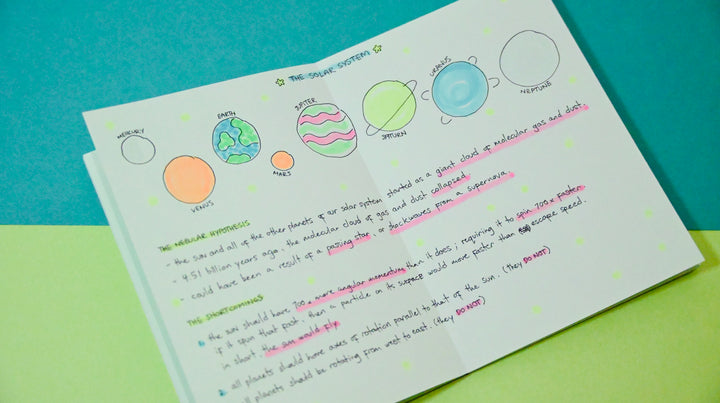 THE SOLAR SYSTEM
MERCURY
VENUS
EARTH
MARS
JUPITER
SATURN
URANUS
NEPTUNE
THE NEBULAR HYPOTHESIS
- the sun and all of the other planets of our solar system started as a giant cloud of molecular gas and dust.
- 4.51 billion years ago, the molecular cloud of gas and dust collapsed.
- could have been a result of a passing star, or shockwaves from a supernova.
THE SHORTCOMINGS
the sun should have 700x more angular momentum than it does; requiring it to spin 700x faster.
if it spun that fast, then a particle on its surface would move faster than escape speed.
in short, the sun would fly.
all planets should have axes of rotation parallel to that of the sun. (they DO NOT)
all planets should be rotating from west to east. (they DO NOT)